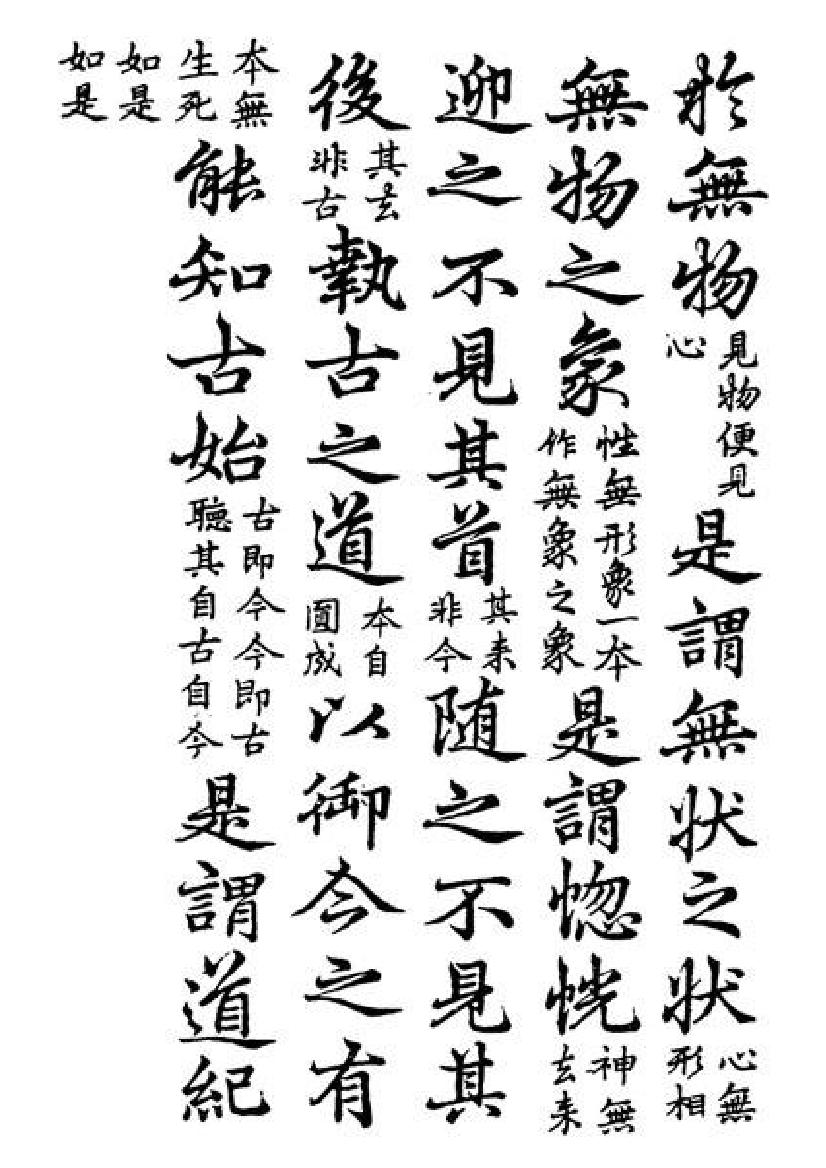 於無物見物便見心是謂無狀之狀心無形相
無物之象性無形象一本作無象之象是謂惚恍神無去来
迎之不見其首其来非今随之不見其
後其去非古執古之道本自圓成以御今之有
本無生死如是如是能知古始古即今今即古聽其自古自今是謂道紀